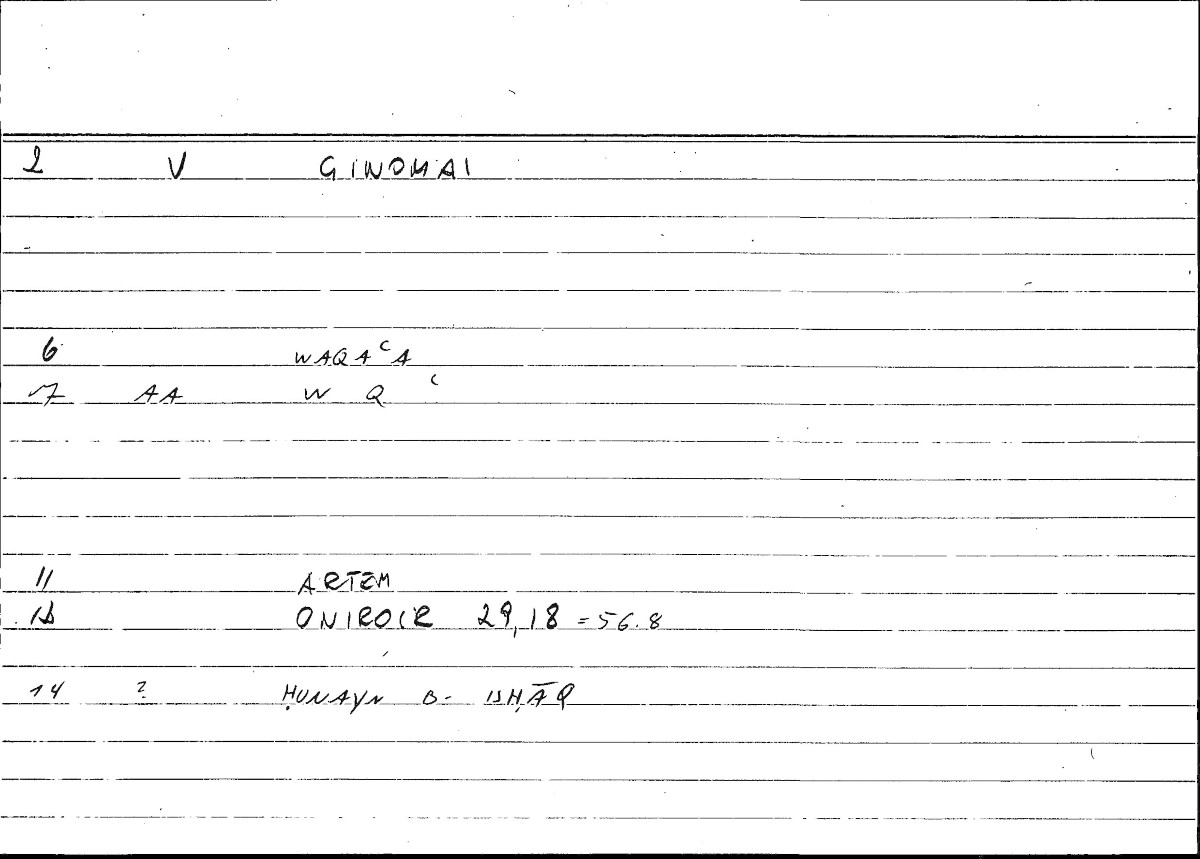 2 V GINOMAI
6 WAQAʿA
7 AA W Q ʿ
11 ARTEM
ONIROCR 29,18 = 56.8
14 ? ḤUNAYN B- ISḤĀQ